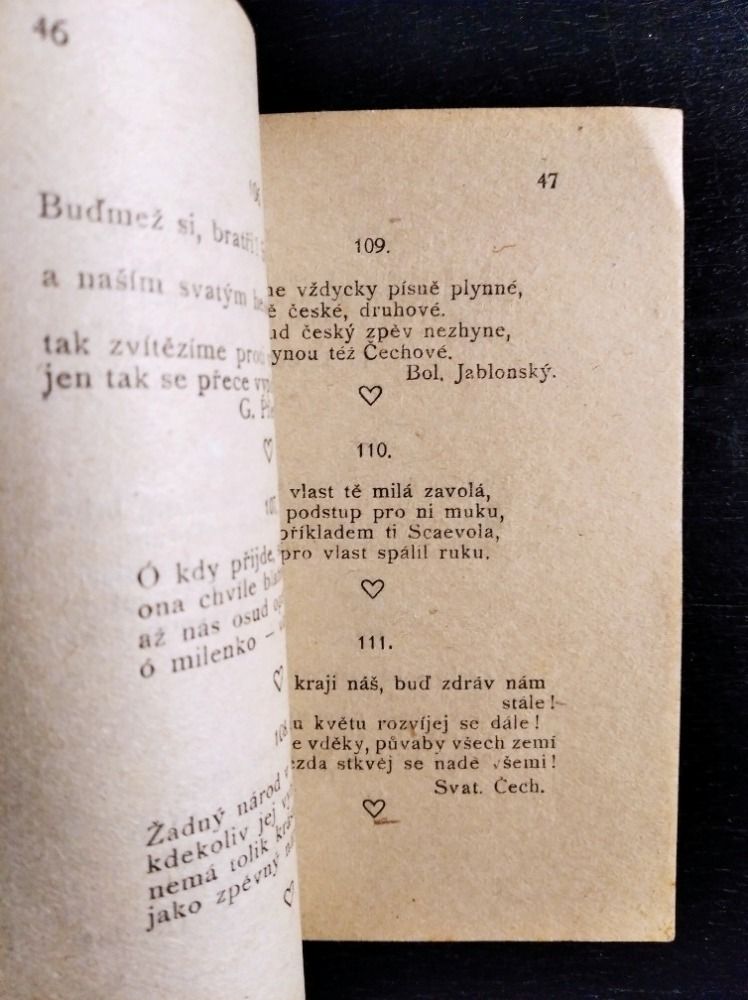 46
Buďmež si, bratři!
a naším svatým
tak zvítězíme
jen tak se přece
G.
♡
107.
Ó kdy přijde,
ona chvíle
až nás osud
ó milenko –
♡
108.
Žadný národ
kdekoliv jej
nemá tolik
jako zpěvný
♡
47
109.
vždycky písně plynné,
české, druhové.
český zpěv nezhyne,
též Čechové.
Bol. Jablonský.
♡
110.
vlast tě milá zavolá,
podstup pro ni muku,
příkladem ti Scaevola,
pro vlast spálil ruku.
♡
111.
kraji náš, buď zdráv nám
stále!
květu rozvíjej se dále!
vděky, půvaby všech zemí
stkvěj se nade všemi!
Svat. Čech.
♡